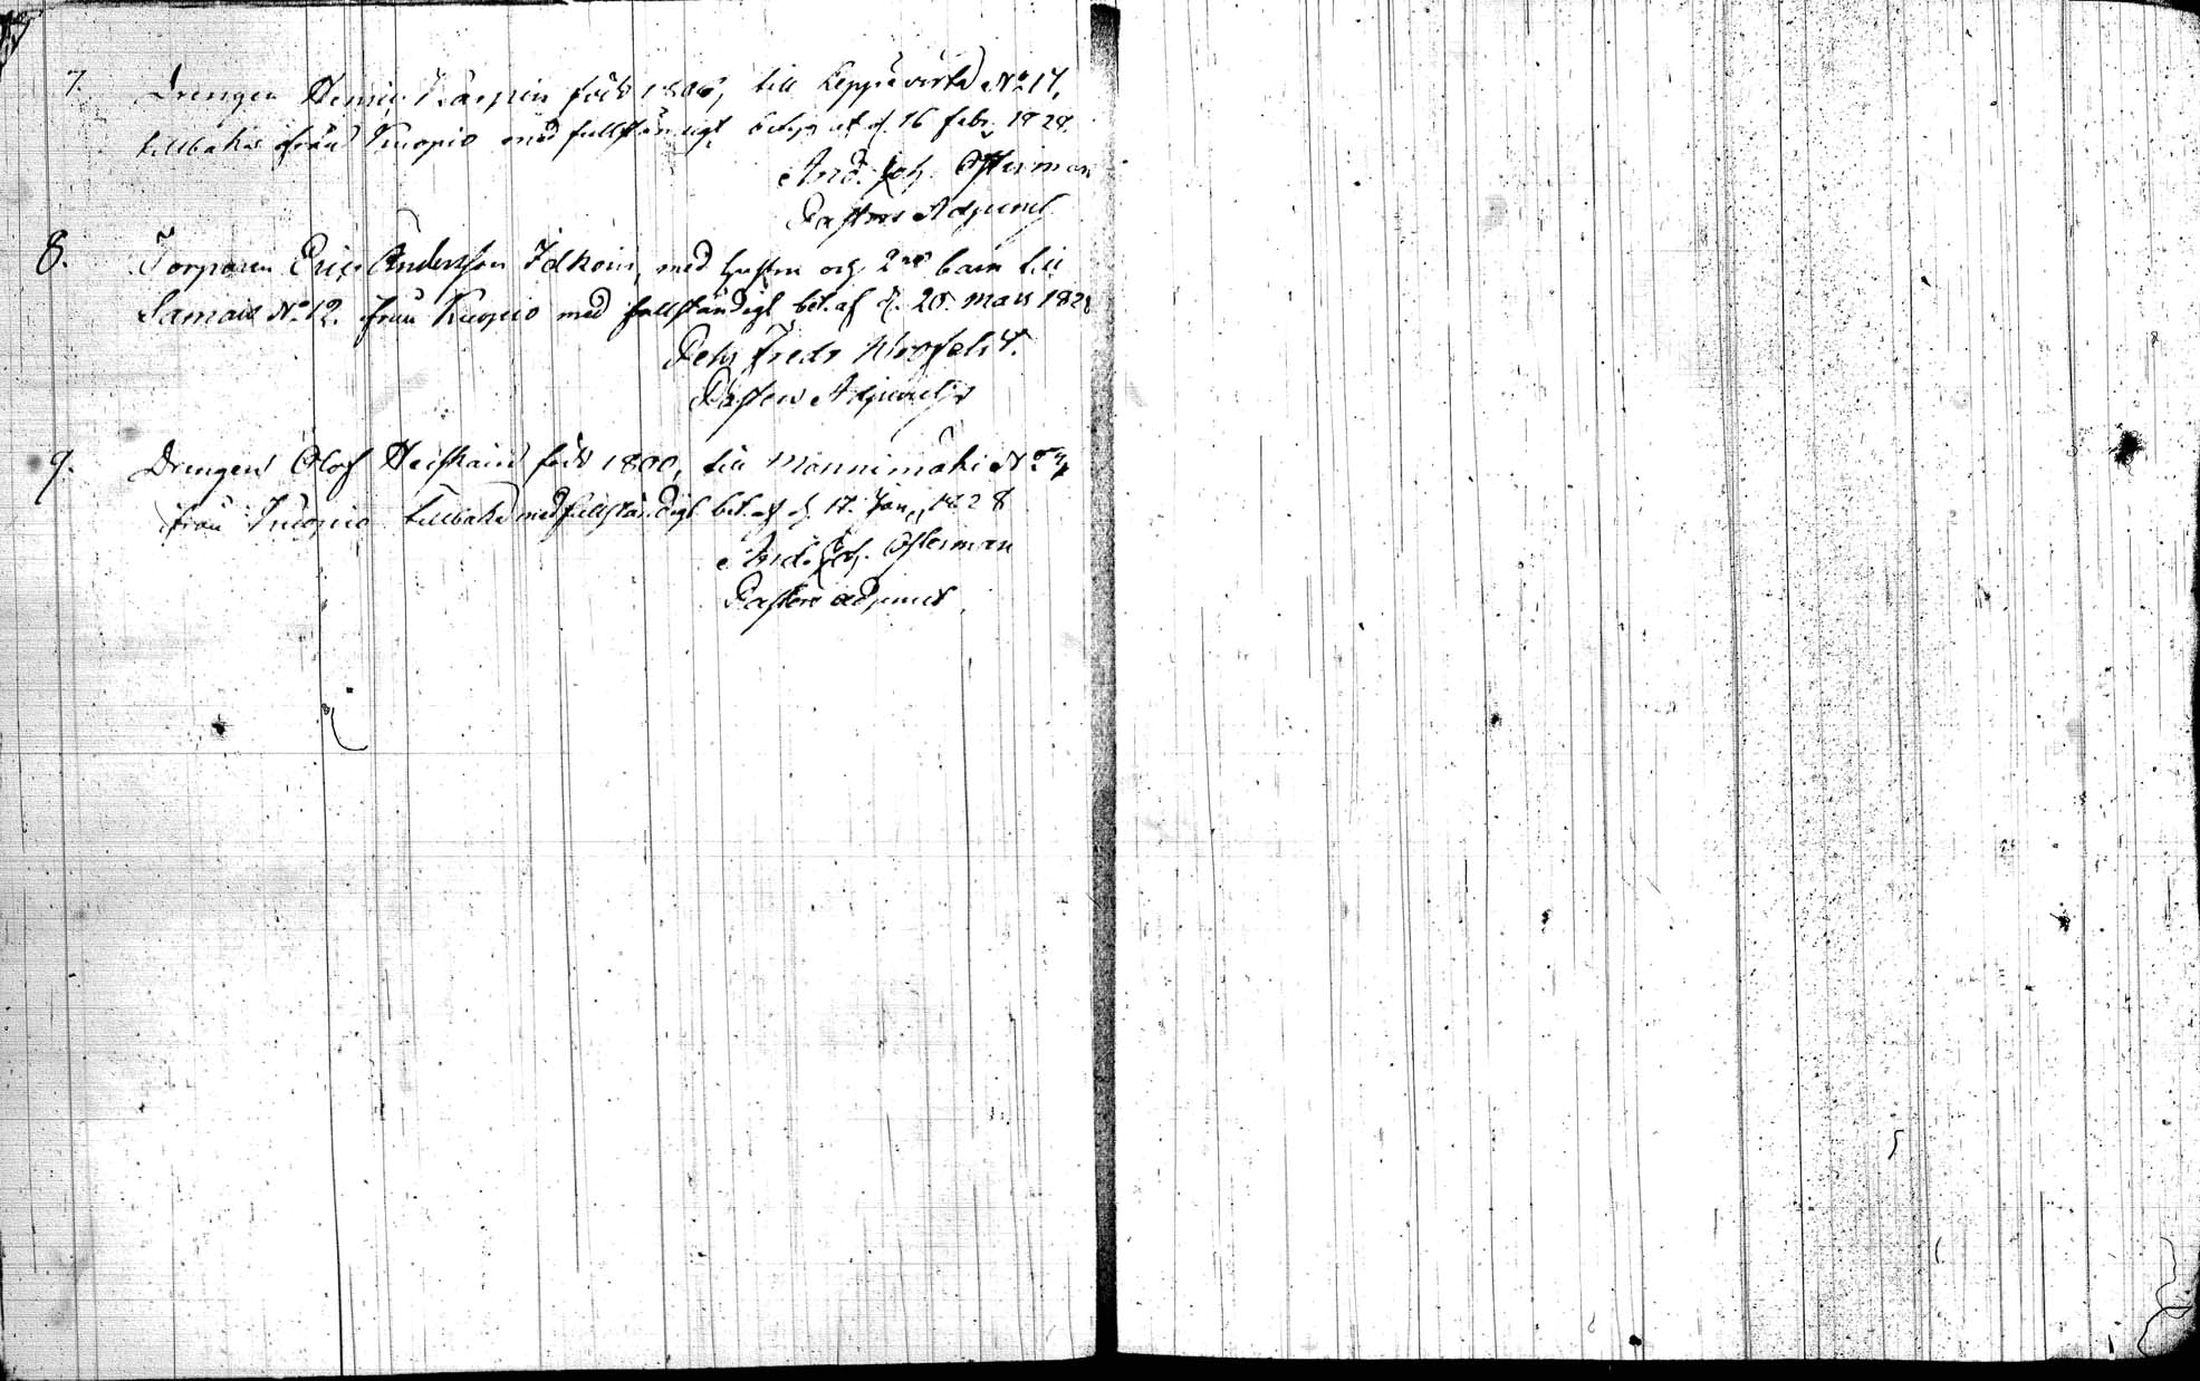 7. Drengen Henric Karpin född 1806, till Leppävirta No 17,
tillbaka från Kuopio med fullständigt betyg af d. 16 febr. 1828.
And. Joh. Osterman
Pastors Adjunct
8. Torparen Eric Andersson Idkoin, med hustru och 2ne barn till
Samais No 12. från Kuopio med fullständigt bet. af d. 20. Mars 1828
Petr Fredr
Pastors Adjunct
9. Drengen Olof Heiskain född 1800, till Mannimäki No
från Kuopio tillbaka med fullständigt bet. af d. 17. Jan. 1828
And. Joh. Osterman
Pastors adjunct